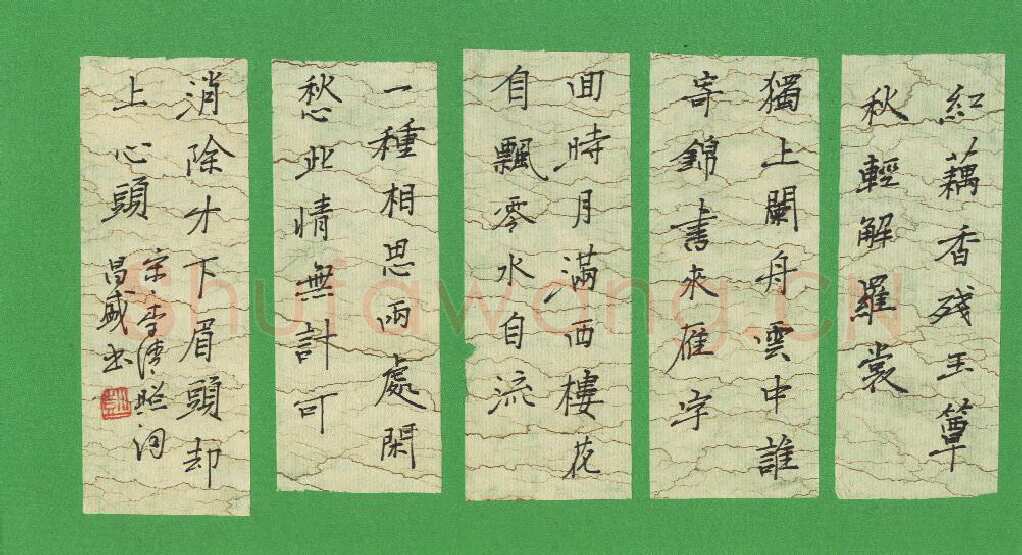 紅藕香残玉簟
秋輕解羅裳
獨上闌舟雲中誰
寄錦書来雁字
回時月滿西樓花
自飄零水自流
一種相思兩處閑
愁此情無計可
消除才下眉頭却
上心頭
宋李清照词
昌盛书
Shufawang.CN